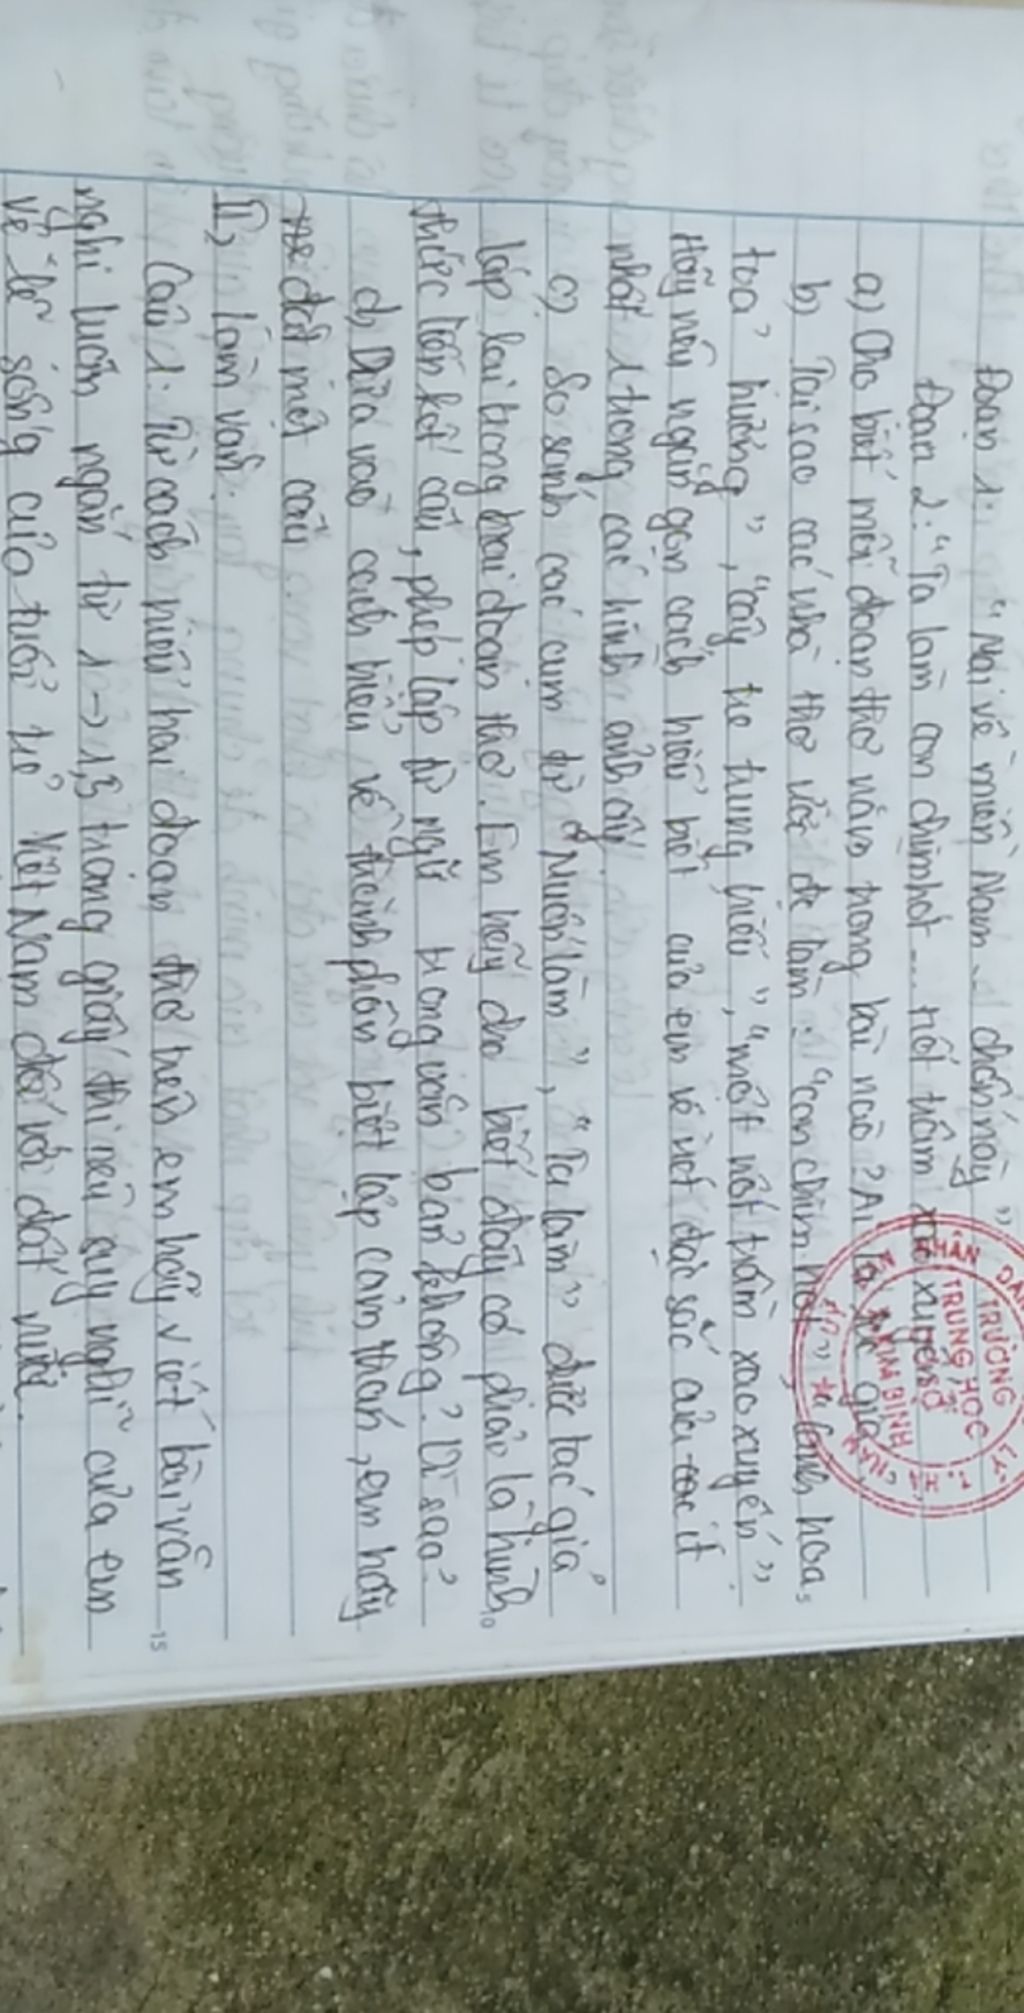 Đoạn 1: "Mai về miền Nam... chốn này"
Đoạn 2: "Ta làm con chim hót ... nốt trầm xao xuyến
a) Cho biết mỗi đoạn thơ nằm trong bài nào? Ai là tác giả
b) Tại sao các nhà thơ ước để làm: "con chim hót", cành hoa,
toả hương", "cây tre trung hiếu", "một nốt trầm xao xuyến".
Hãy nêu ngắn gọn cách hiểu biết của em về nét đặc sắc của các ít
nhất 1 trong các hình ảnh ấy
c) So sánh các cụm từ "Muốn làm", "Ta làm" được tác giả
lặp lại trong hai đoạn thơ. Em hãy cho biết đây có phải là hình
thức liên kết câu, phép lặp từ ngữ trong văn bản không? Vì sao?
d) Dựa vào cách hiểu về thành phần biệt lập cảm thán, em hãy
đặt một câu
II) Làm văn.
Câu 1: Từ cách hiểu hai đoạn thơ trên em hãy viết bài văn
nghị luận ngắn từ 1 → 1,5 trang giấy thi nêu suy nghĩ của em
về lẽ sống của tuổi trẻ Việt Nam đối với đất nước.
NHÂN DÂN
TRƯỜNG
TRUNG HỌC
CƠ SỞ
KIM BÌNH
T. HÀ NAM